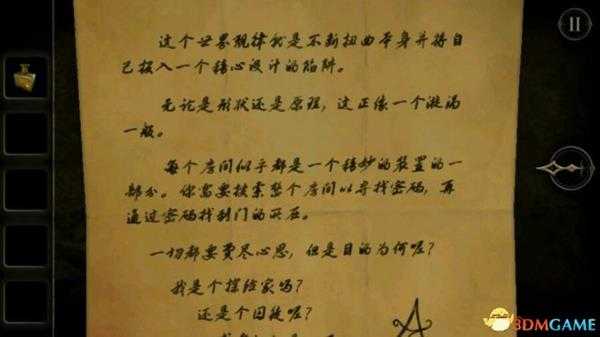 这个世界规律我是不断扭曲本身并将自
己投入一个精心设计的陷阱。
无论是形状还是原理，这正像一个漩涡
一般。
每个房间似乎都是一个精妙的装置的一
部分。你需要搜索整个房间以寻找密码，再
通过密码找到门的
一切都要费尽心思，但是目的为何呢？
我是个探险家吗？
还是个囚徒呢？
3DMGAME